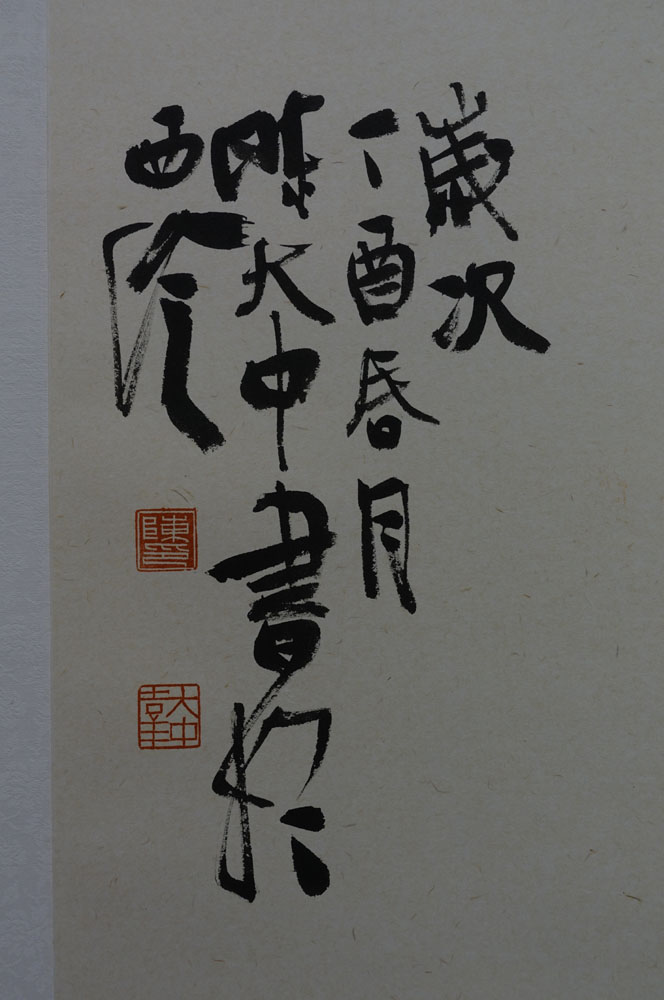 歲次
丁酉春月
陳大中書於
西泠
陳印
大中